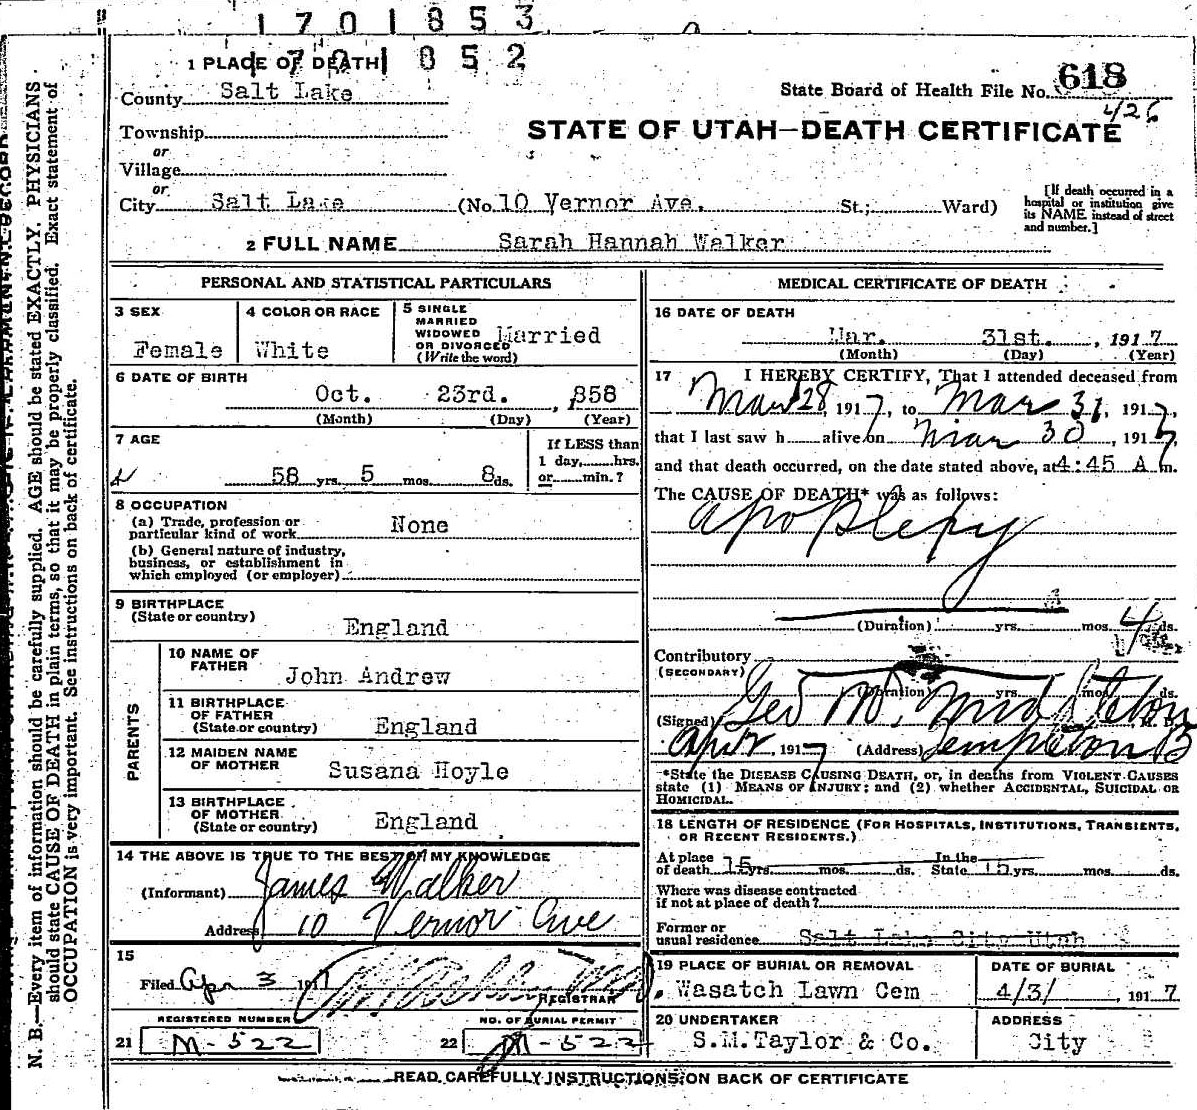 1701853
1701852
1 PLACE OF DEATH
County Salt Lake
State Board of Health File No. 618
426
Township
or
Village
or
STATE OF UTAH—DEATH CERTIFICATE
City Salt Lake (No. 10 Vernor Ave. St.; Ward)
[If death occurred in a
hospital or institution give
its NAME instead of street
and number.]
2 FULL NAME Sarah Hannah Walker
PERSONAL AND STATISTICAL PARTICULARS
3 SEX
Female
4 COLOR OR RACE
White
5 SINGLE
MARRIED
WIDOWED
OR DIVORCED
(Write the word)
Married
6 DATE OF BIRTH
Oct. 23rd. , 1858
(Month) (Day) (Year)
7 AGE
58 yrs. 5 mos. 8 ds.
If LESS than
1 day, hrs.
or min.?
8 OCCUPATION
(a) Trade, profession or
particular kind of work None
(b) General nature of industry,
business, or establishment in
which employed (or employer)
9 BIRTHPLACE
(State or country)
England
PARENTS
10 NAME OF
FATHER
John Andrew
11 BIRTHPLACE
OF FATHER
(State or country)
England
12 MAIDEN NAME
OF MOTHER
Susana Hoyle
13 BIRTHPLACE
OF MOTHER
(State or country)
England
14 THE ABOVE IS TRUE TO THE BEST OF MY KNOWLEDGE
(Informant) James Walker
Address 10 Vernor Ave
15
Filed Apr 3 1917
REGISTRAR
REGISTERED NUMBER
21 M-522
NO. OF BURIAL PERMIT
22 M-522
MEDICAL CERTIFICATE OF DEATH
16 DATE OF DEATH
Mar. 31st. , 1917
(Month) (Day) (Year)
17 I HEREBY CERTIFY, That I attended deceased from
Mar 28, 1917, to Mar 31, 1917,
that I last saw h alive on Mar 30, 1917,
and that death occurred, on the date stated above, at 4:45 A m.
The CAUSE OF DEATH* was as follows:
Apoplepy
(Duration) yrs. mos. 4 ds.
Contributory
(SECONDARY)
(Duration) yrs. mos. ds.
(Signed) Geo M. Middleton M. D.
Apr , 1917 (Address) Templeton B
*State the DISEASE CAUSING DEATH, or, in deaths from VIOLENT CAUSES
state (1) MEANS OF INJURY; and (2) whether ACCIDENTAL, SUICIDAL OR
HOMICIDAL.
18 LENGTH OF RESIDENCE (FOR HOSPITALS, INSTITUTIONS, TRANSIENTS,
OR RECENT RESIDENTS.)
At place
of death 15 yrs. mos. ds. In the
State 15 yrs. mos. ds.
Where was disease contracted
if not at place of death?
Former or
usual residence Salt Lake City Utah
19 PLACE OF BURIAL OR REMOVAL
Wasatch Lawn Cem
DATE OF BURIAL
4/3/ , 1917
20 UNDERTAKER
S.M.Taylor & Co.
ADDRESS
City
READ CAREFULLY INSTRUCTIONS ON BACK OF CERTIFICATE
N. B.—Every item of information should be carefully supplied. AGE should be stated EXACTLY. PHYSICIANS
should state CAUSE OF DEATH in plain terms, so that it may be properly classified. Exact statement of
OCCUPATION is very important. See instructions on back of certificate.